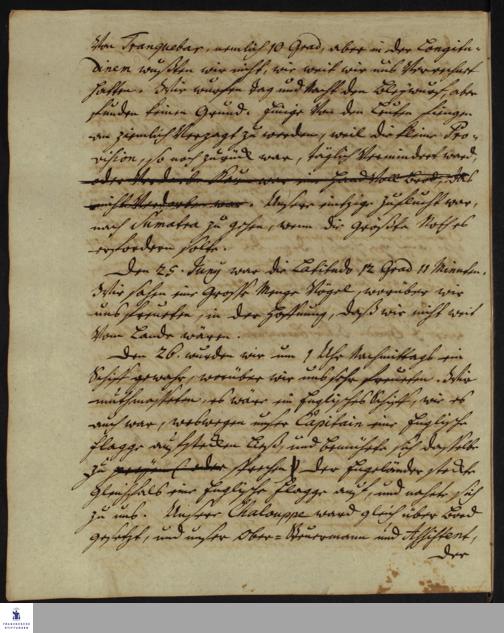 von Tranquebar, nemlich 10 Grad, aber in der Longitu-
dinem wußten wir nicht, wie weit wir uns verrechnet
hatten. Wir wurfen Tag und Nacht den Bleywurf, aber
funden keinen Grund. Einige von den Leuten fiengen
an ziemlich verzagt zu werden, weil die kleine Pro-
vision, so noch zurück war, täglich vermindert ward
oder
nicht verdorben war. Unsere einzige Zuflucht war,
nach Sumatra zu gehen, wenn die größte Noth es
erfordern solte.
Den 25. Juny war die Latitude 12 Grad 11 Minuten.
Wir sahen eine Große Menge Vögel, worüber wir
uns freueten, in der Hoffnung, daß wir nicht weit
vom Lande wären.
Den 26. wurden wir um 1 Uhr Nachmittags ein
Schiff gewahr, worüber wir uns sehr freueten. Wir
muthmaßeten, es wäre ein Englisches Schiff, wie es
auch war, weswegen unser Capitain eine Englische
Flagge aufstecken ließ, und bemühete sich dasselbe
zu (oder sprechen) der Engeländer steckte
gleichfals eine Englische Flagge auf, und nahete sich
zu uns. Unsere Chalouppe ward gleich über Bord
gesetzt, und unser Ober-Steuermann und Assistent,
der
FRANCKESCHE
STIFTUNGEN